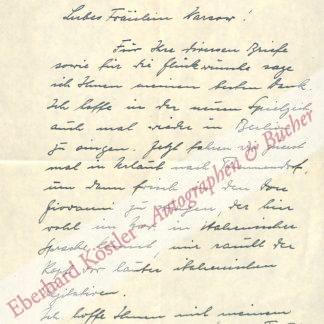 Liebes Fräulein Narsow!
Für Ihre diversen Briefe
sowie für die Glückwünsche sage
ich Ihnen meinen besten Dank.
Ich hoffe in der neuen Spielzeit
auch mal wieder in Berlin
zu singen. Jetzt fahren wir zunächst
mal in Urlaub nach
um dann frisch den Don
Giovanni zu, der hier
wohl in italienischer
Sprache, mir raucht der
Kopf vor lauter italienischen
Rezitativen.
Ich hoffe Ihnen mit meinen
Eberhard Köstler Autographen & Bücher